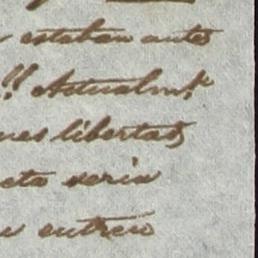 estaban antes
!! Actualmte
ues libertad,
cta seria
entreu